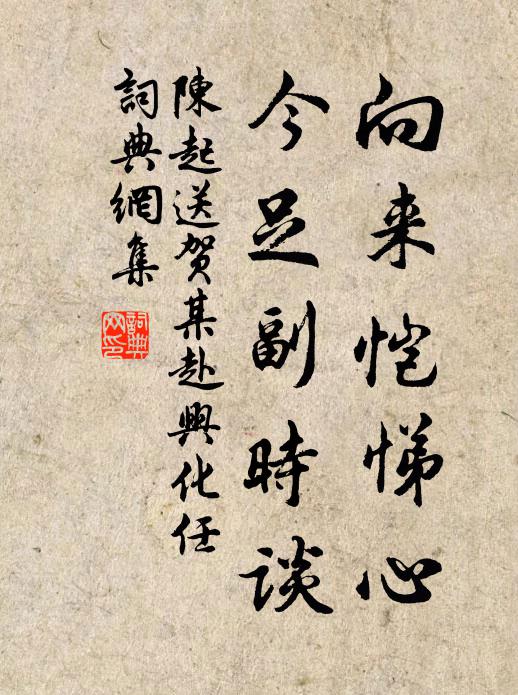 向来恺悌心
今足副時谈
陳起送贺某赴興化任
詞典網集
詞典網印